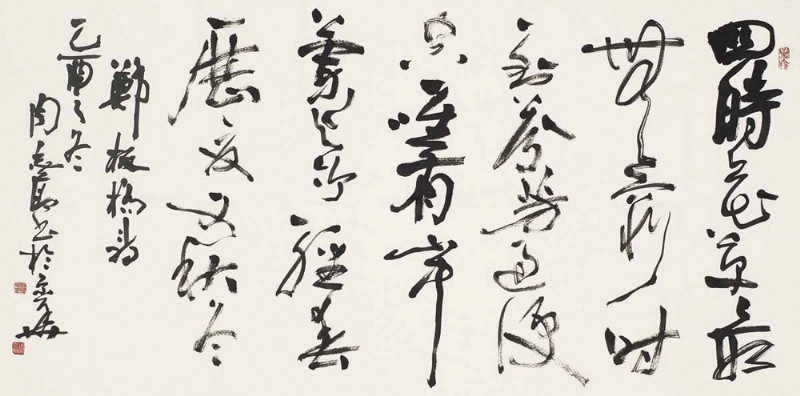 四時花草最
無窮時
到芬芳過便
空唯有山中
蘭與竹經春
歷夏又秋冬
鄭板橋詩
乙酉之冬
周志高書於京華